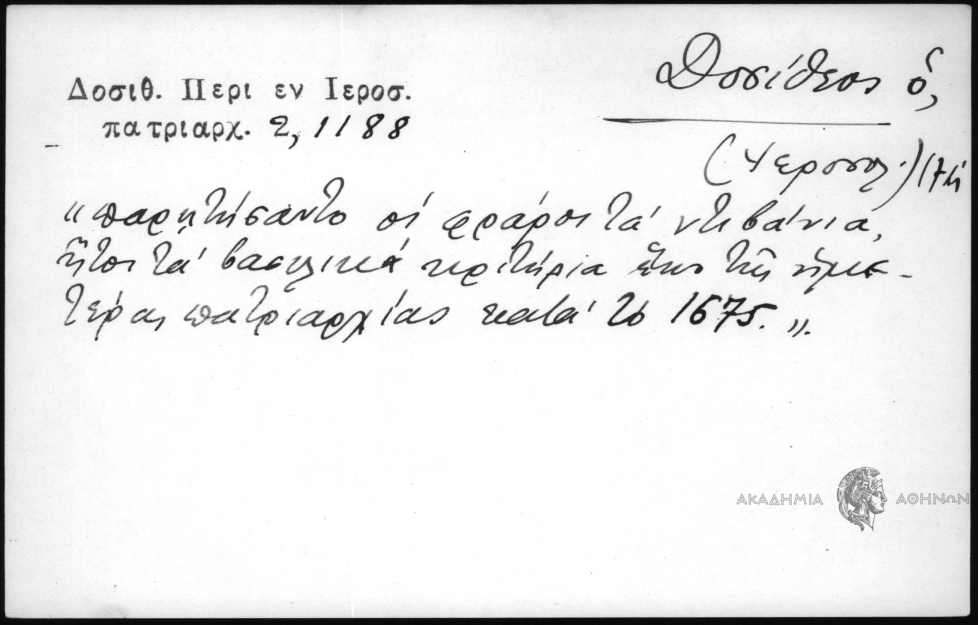 Δοσιθ. Περι εν Ιεροσ.
πατριαρχ. 2, 1188
Δοσίθεος ὁ,
(Ἱεροσολ.) 17η
"παρῃτήσαντο οἱ φράροι τά ντιβάνια,
ἤτοι τά βασιλικά κριτήρια ἐκ τῆς ἡμε-
τέρας πατριαρχίας κατά τό 1675."
ΑΚΑΔΗΜΙΑ ΑΘΗΝΩΝ